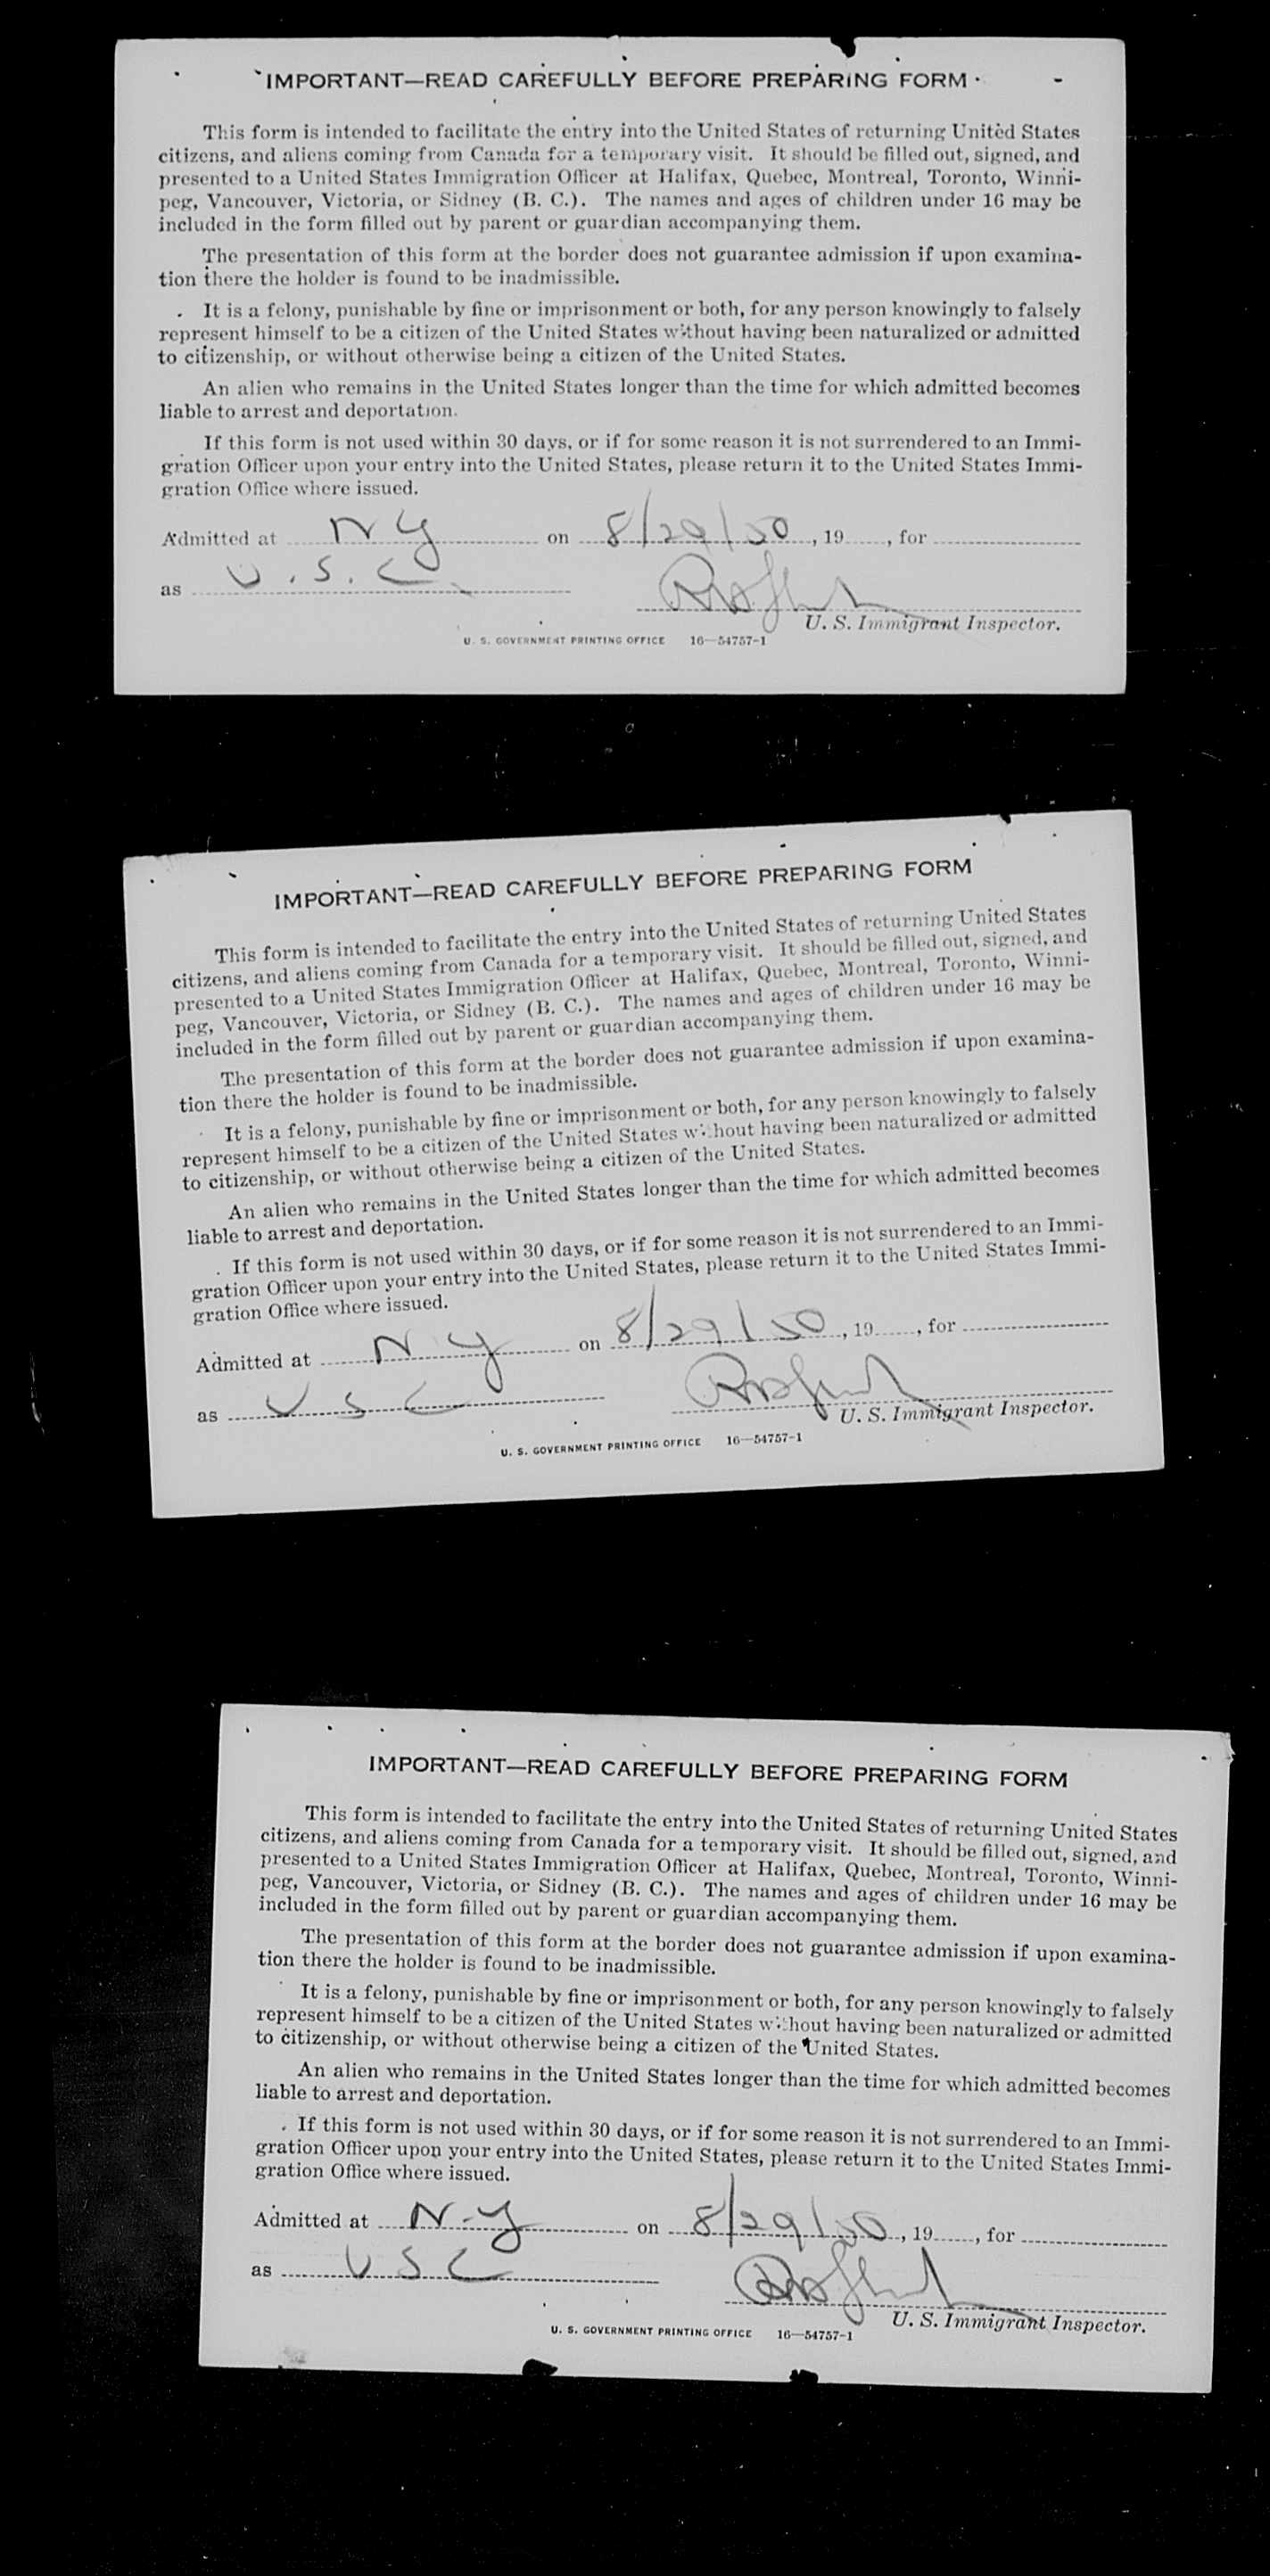 IMPORTANT—READ CAREFULLY BEFORE PREPARING FORM
This form is intended to facilitate the entry into the United States of returning United States
citizens, and aliens coming from Canada for a temporary visit. It should be filled out, signed, and
presented to a United States Immigration Officer at Halifax, Quebec, Montreal, Toronto, Winni-
peg, Vancouver, Victoria, or Sidney (B. C.). The names and ages of children under 16 may be
included in the form filled out by parent or guardian accompanying them.
The presentation of this form at the border does not guarantee admission if upon examina-
tion there the holder is found to be inadmissible.
It is a felony, punishable by fine or imprisonment or both, for any person knowingly to falsely
represent himself to be a citizen of the United States without having been naturalized or admitted
to citizenship, or without otherwise being a citizen of the United States.
An alien who remains in the United States longer than the time for which admitted becomes
liable to arrest and deportation.
If this form is not used within 30 days, or if for some reason it is not surrendered to an Immi-
gration Officer upon your entry into the United States, please return it to the United States Immi-
gration Office where issued.
Admitted at N Y on 8/29/50, 19, for
as U. S. C.
U. S. Immigrant Inspector.
U. S. GOVERNMENT PRINTING OFFICE 16—54757-1
IMPORTANT—READ CAREFULLY BEFORE PREPARING FORM
This form is intended to facilitate the entry into the United States of returning United States
citizens, and aliens coming from Canada for a temporary visit. It should be filled out, signed, and
presented to a United States Immigration Officer at Halifax, Quebec, Montreal, Toronto, Winni-
peg, Vancouver, Victoria, or Sidney (B. C.). The names and ages of children under 16 may be
included in the form filled out by parent or guardian accompanying them.
The presentation of this form at the border does not guarantee admission if upon examina-
tion there the holder is found to be inadmissible.
It is a felony, punishable by fine or imprisonment or both, for any person knowingly to falsely
represent himself to be a citizen of the United States without having been naturalized or admitted
to citizenship, or without otherwise being a citizen of the United States.
An alien who remains in the United States longer than the time for which admitted becomes
liable to arrest and deportation.
If this form is not used within 30 days, or if for some reason it is not surrendered to an Immi-
gration Officer upon your entry into the United States, please return it to the United States Immi-
gration Office where issued.
Admitted at N Y on 8/29/50, 19, for
as U S C
U. S. Immigrant Inspector.
U. S. GOVERNMENT PRINTING OFFICE 16—54757-1
IMPORTANT—READ CAREFULLY BEFORE PREPARING FORM
This form is intended to facilitate the entry into the United States of returning United States
citizens, and aliens coming from Canada for a temporary visit. It should be filled out, signed, and
presented to a United States Immigration Officer at Halifax, Quebec, Montreal, Toronto, Winni-
peg, Vancouver, Victoria, or Sidney (B. C.). The names and ages of children under 16 may be
included in the form filled out by parent or guardian accompanying them.
The presentation of this form at the border does not guarantee admission if upon examina-
tion there the holder is found to be inadmissible.
It is a felony, punishable by fine or imprisonment or both, for any person knowingly to falsely
represent himself to be a citizen of the United States without having been naturalized or admitted
to citizenship, or without otherwise being a citizen of the United States.
An alien who remains in the United States longer than the time for which admitted becomes
liable to arrest and deportation.
If this form is not used within 30 days, or if for some reason it is not surrendered to an Immi-
gration Officer upon your entry into the United States, please return it to the United States Immi-
gration Office where issued.
Admitted at N-Y on 8/29/50, 19, for
as U S C
U. S. Immigrant Inspector.
U. S. GOVERNMENT PRINTING OFFICE 16—54757-1